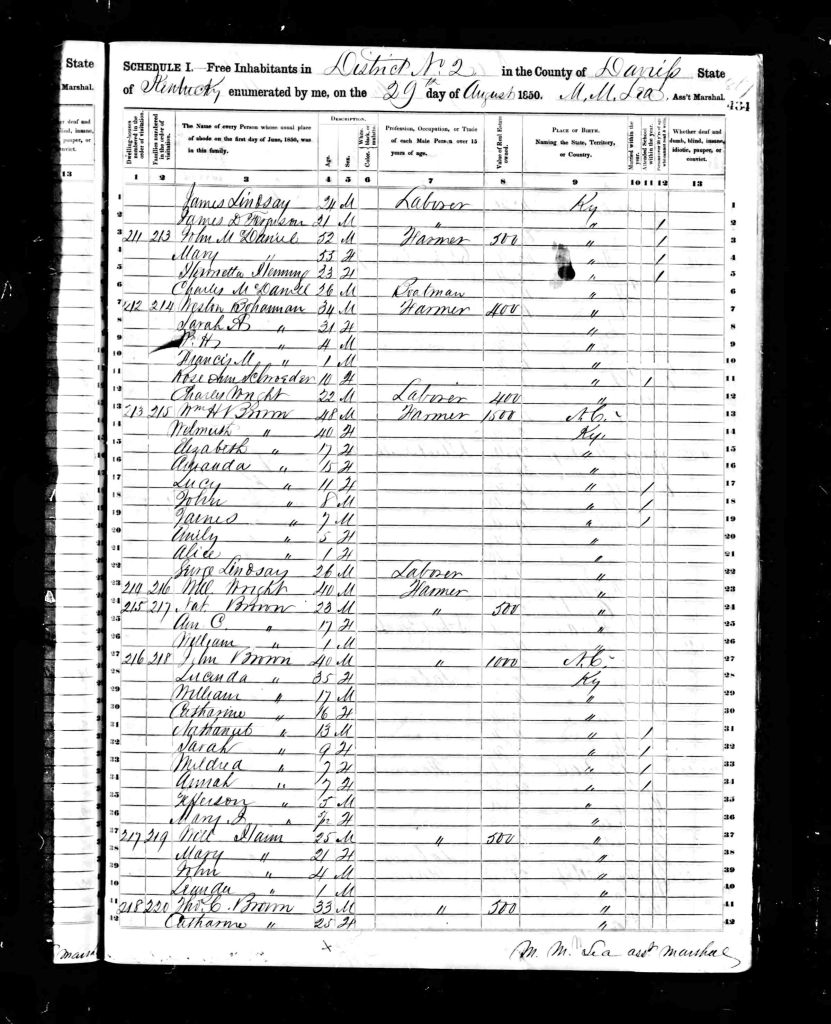 State
Marshal.
her deaf and
blind, insane,
pauper, or
convict.
13
SCHEDULE I. Free Inhabitants in District No 2 in the County of Daviess State
of Kentucky enumerated by me, on the 29th day of August 1850. M. M. Lea Ass't Marshal.
434
Dwelling-houses numbered in the order of visitation.
Families numbered in the order of visitation.
The Name of every Person whose usual place of abode on the first day of June, 1850, was in this family.
DESCRIPTION.
Age.
Sex.
White, black, or mulatto.
Color.
Profession, Occupation, or Trade of each Male Person over 15 years of age.
Value of Real Estate owned.
PLACE OF BIRTH. Naming the State, Territory, or Country.
Married within the year.
Attended School within the year.
Whether deaf and dumb, blind, insane, idiotic, pauper, or convict.
1 2 3 4 5 6 7 8 9 10 11 12 13
1 James Lindsay 24 M Laborer Ky 1
2 James D 21 M " " / 2
3 211 213 John McDaniel 52 M Farmer 500 " / 3
4 Mary " 55 F " / 4
5 Henrietta 23 F " / 5
6 Charles McDaniel 26 M Boatman " 6
7 212 214 Weston Bohannan 34 M Farmer 400 " 7
8 Sarah A " 31 F " 8
9 W. H. " 4 M " 9
10 Francis M. " 1 M " 10
11 Rose Ann Schroeder 10 F " / 11
12 Charles Wright 22 M Laborer 400 " 12
13 213 215 Wm H Brown 48 M Farmer 1500 N.C. 13
14 " 40 F Ky. 14
15 Elizabeth " 17 F " 15
16 Amanda " 15 F " 16
17 Lucy " 11 F " / 17
18 John " 8 M " / 18
19 James " 7 M " / 19
20 Emily " 5 F " 20
21 Alice " 1 F " 21
22 George Lindsay 26 M Laborer " 22
23 214 216 Will Wright 40 M Farmer " 23
24 215 217 Nat Brown 23 M 500 " 24
25 Ann C " 17 F " 25
26 William " 1 M " 26
27 216 218 John Brown 40 M " 1000 N.C. 27
28 Lucinda " 35 F Ky 28
29 William " 17 M " 29
30 Catharine " 16 F " 30
31 Nathaniel " 13 M " / 31
32 Sarah " 9 F " / 32
33 Mildred " 7 F " / 33
34 Annah " 7 F " / 34
35 Jefferson " 5 M " 35
36 Mary " F " 36
37 217 219 Will 25 M " 500 " 37
38 Mary " 21 F " 38
39 John " 4 M " 39
40 Leander " 1 M " 40
41 218 220 Tho. C. Brown 33 M " 500 " 41
42 Catharine " 25 F " 42
M. M. Lea asst marshal
marshal